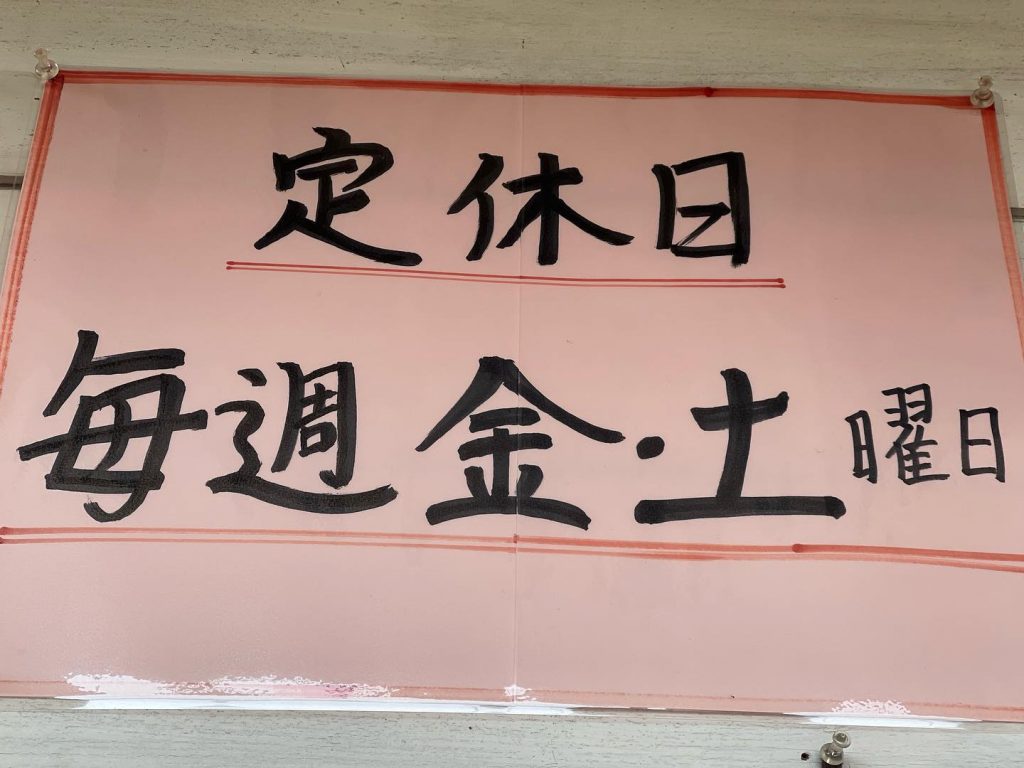 定休日
毎週金・土曜日